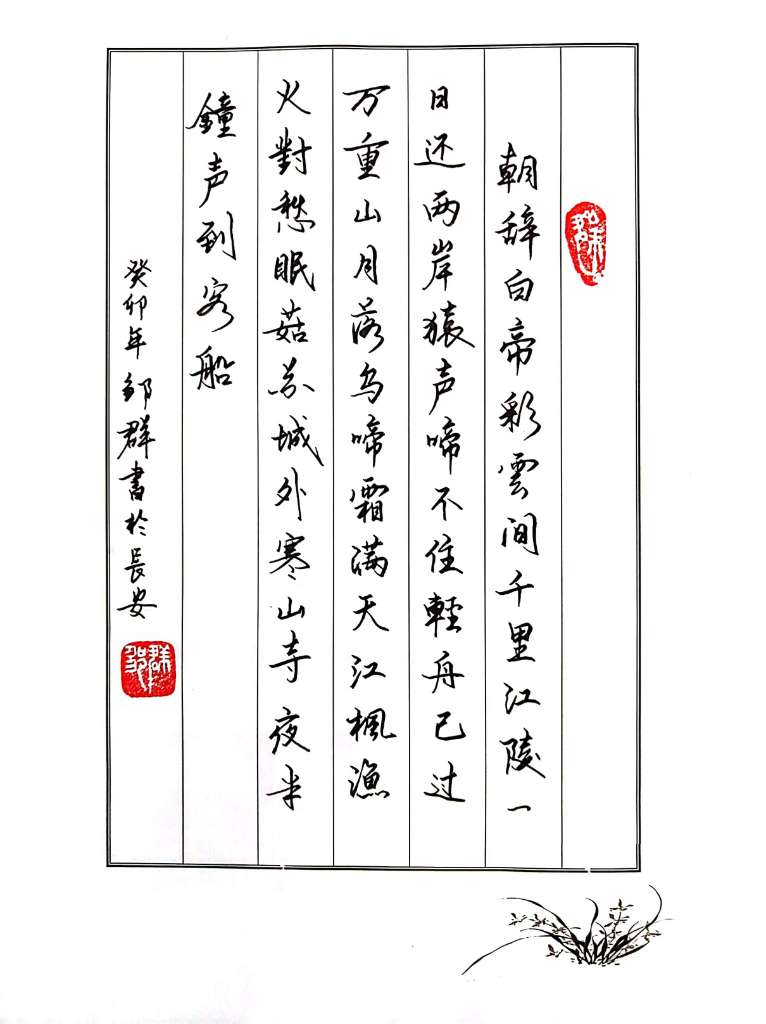 群
朝辞白帝彩雲间千里江陵一
日还两岸猿声啼不住輕舟已过
万重山月落乌啼霜满天江楓漁
火對愁眠菇苏城外寒山寺夜半
鐘声到客船
癸卯年邹群書於長安
邹群